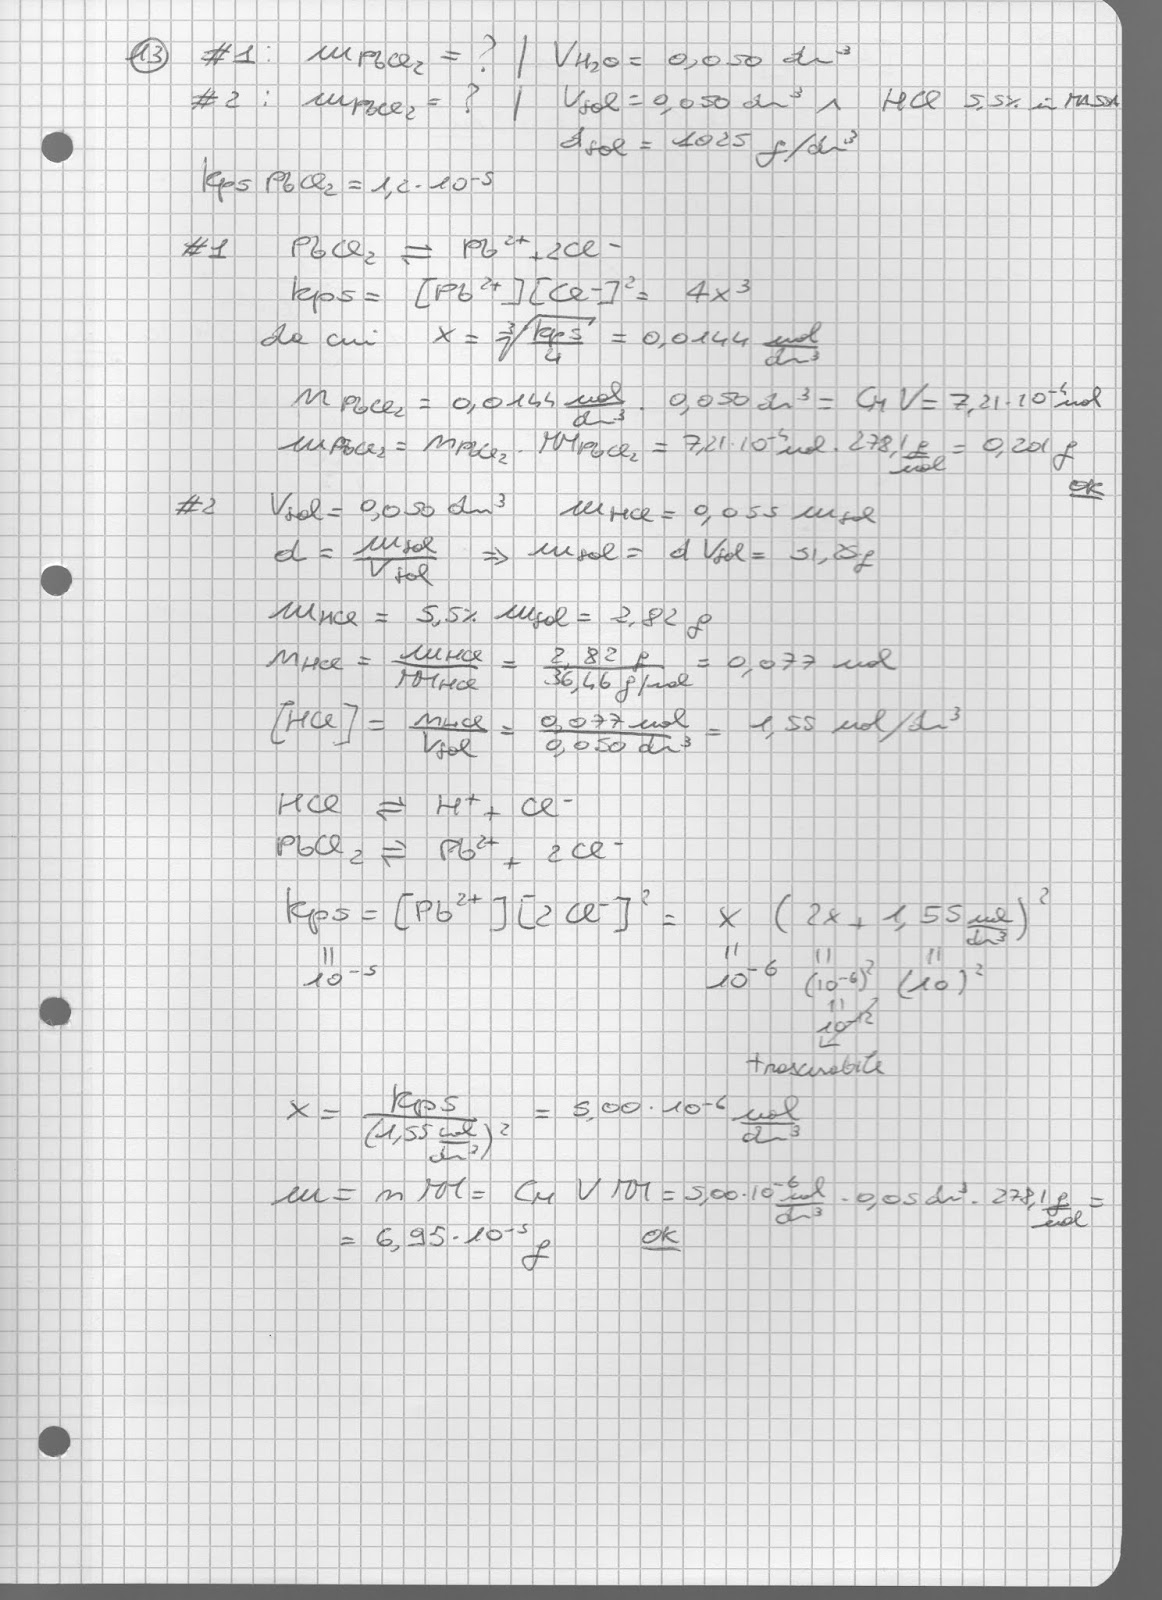 13 #1: mPbCl₂ = ? | VH₂O = 0,050 dm³
#2: mPbCl₂ = ? | Vsol = 0,050 dm³ ∧ HCl 5,5% in MASSA
dsol = 1025 g/dm³
kps PbCl₂ = 1,2·10⁻⁵
#1 PbCl₂ ⇌ Pb²⁺ + 2Cl⁻
kps = [Pb²⁺][Cl⁻]² = 4x³
da cui x = ∛(kps/4) = 0,0144 mol/dm³
nPbCl₂ = 0,0144 mol/dm³ · 0,050 dm³ = CM V = 7,21·10⁻⁴ mol
mPbCl₂ = nPbCl₂ · MMPbCl₂ = 7,21·10⁻⁴ mol · 278,1 g/mol = 0,201 g
OK
#2 Vsol = 0,050 dm³ mHCl = 0,055 msol
d = msol/Vsol ⇒ msol = d Vsol = 51,25 g
mHCl = 5,5% msol = 2,82 g
nHCl = mHCl/MMHCl = 2,82 g/36,46 g/mol = 0,077 mol
[HCl] = nHCl/Vsol = 0,077 mol/0,050 dm³ = 1,55 mol/dm³
HCl ⇌ H⁺ + Cl⁻
PbCl₂ ⇌ Pb²⁺ + 2Cl⁻
kps = [Pb²⁺][2Cl⁻]² = x (2x + 1,55 mol/dm³)²
= = = =
10⁻⁵ 10⁻⁶ (10⁻⁶)² (10)²
=
10⁻¹²
trascurabile
x = kps/(1,55 mol/dm³)² = 5,00·10⁻⁶ mol/dm³
m = n MM = CM V MM = 5,00·10⁻⁶ mol/dm³ · 0,05 dm³ · 278,1 g/mol =
= 6,95·10⁻⁵ g OK